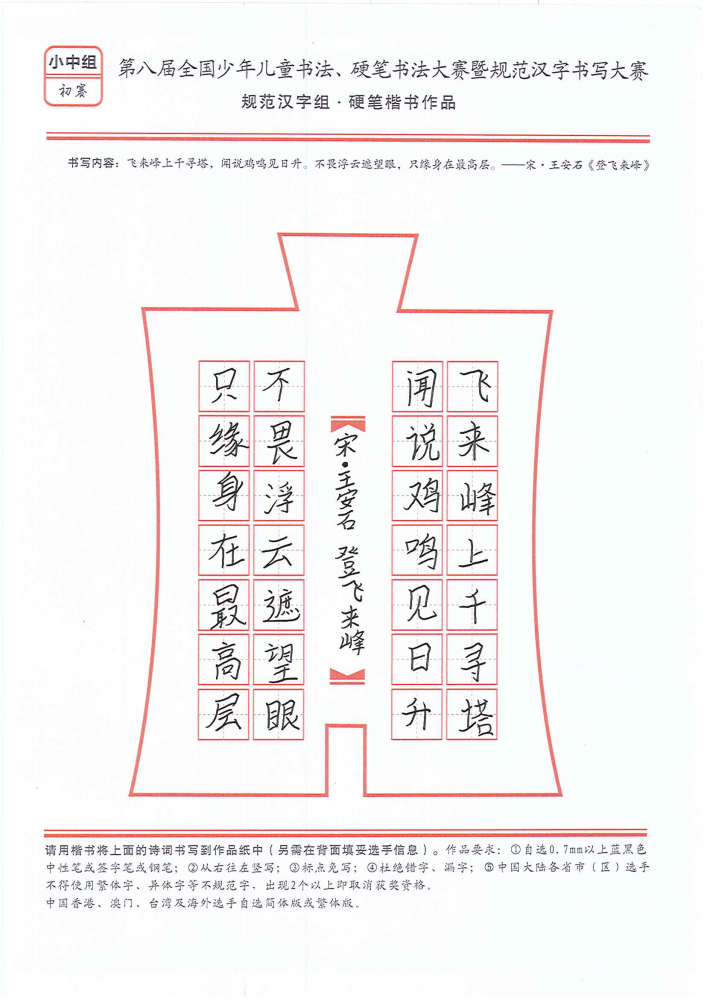 小中组
初赛
第八届全国少年儿童书法、硬笔书法大赛暨规范汉字书写大赛
规范汉字组·硬笔楷书作品
书写内容：飞来峰上千寻塔，闻说鸡鸣见日升。不畏浮云遮望眼，只缘身在最高层。——宋·王安石《登飞来峰》
飞来峰上千寻塔
闻说鸡鸣见日升
宋·王安石 登飞来峰
不畏浮云遮望眼
只缘身在最高层
请用楷书将上面的诗词书写到作品纸中（另需在背面填妥选手信息）。作品要求：①自选0.7mm以上蓝黑色
中性笔或签字笔或钢笔；②从右往左竖写；③标点免写；④杜绝错字、漏字；⑤中国大陆各省市（区）选手
不得使用繁体字、异体字等不规范字，出现2个以上即取消获奖资格。
中国香港、澳门、台湾及海外选手自选简体版或繁体版。